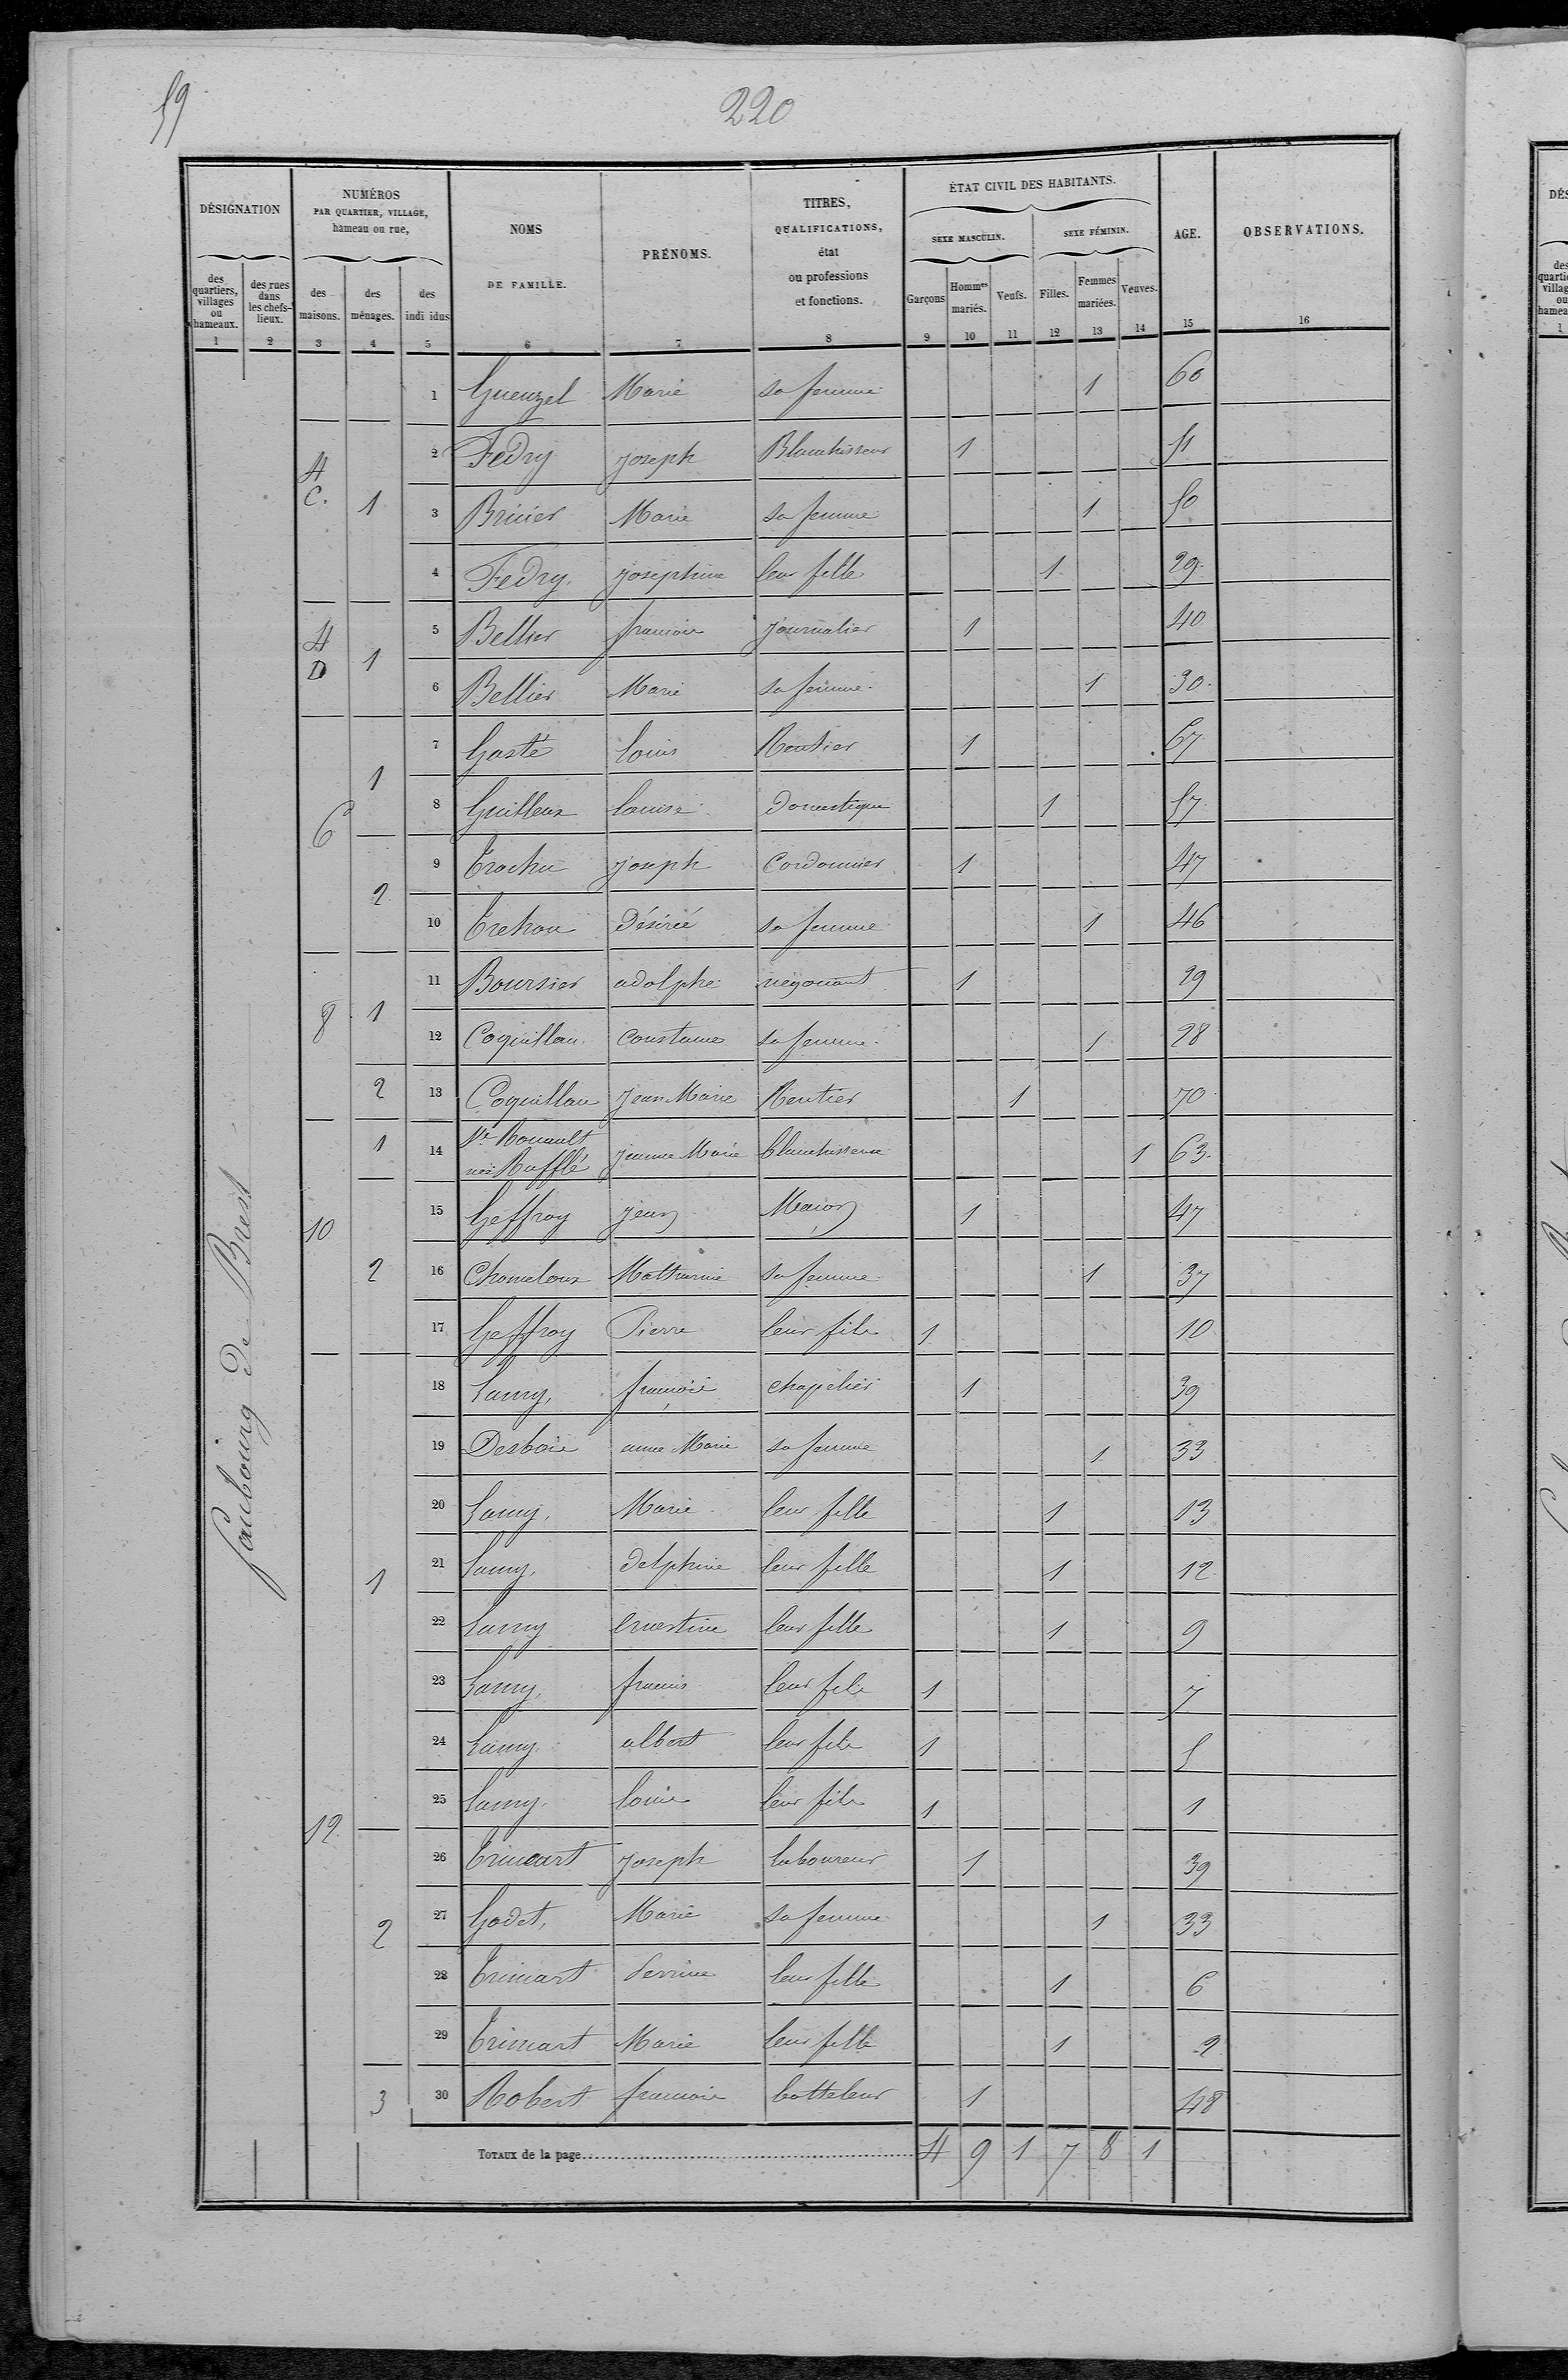 59
220
DÉSIGNATION
NUMÉROS
PAR QUARTIER, VILLAGE,
hameau ou rue,
NOMS
DE FAMILLE.
PRÉNOMS.
TITRES,
QUALIFICATIONS,
état
ou professions
et fonctions.
ÉTAT CIVIL DES HABITANTS.
SEXE MASCULIN. SEXE FÉMININ.
AGE.
OBSERVATIONS.
des quartiers, villages ou hameaux. des rues dans les chefs-lieux. des maisons. des ménages. des indi idus
Garçons Hommes mariés. Veufs. Filles. Femmes mariées. Veuves.
1 2 3 4 5 6 7 8 9 10 11 12 13 14 15 16
faubourg de Brest
1 Gueuzel Marie sa femme 1 60
4 C. 1 2 Fedry joseph Blanchisseur 1 51
3 Bricier Marie sa femme 1 50
4 Fedry joséphine leur fille 1 29
4 D 1 5 Bellier francois journalier 1 40
6 Bellier Marie sa femme 1 30
6 1 7 Gasté louis Rentier 1 67
8 Guilleux louise Domestique 1 57
2 9 Trochu joseph Cordonnier 1 47
10 Trehou Désirée sa femme 1 46
8 1 11 Boursier adolphe négociant 1 29
12 Coquillau constance sa femme 1 28
2 13 Coquillau jean Marie Rentier 1 70
10 1 14 Ve Rouault née Rufflé jeanne Marie blanchisseuse 1 63
2 15 Geffroy jean Maçon 1 47
16 Chomeloux Mathurine sa femme 1 37
17 Geffroy Pierre leur fils 1 10
12 1 18 Lamy, françois chapelier 1 39
19 Desbois anne Marie sa femme 1 33
20 Lamy, Marie leur fille 1 13
21 Lamy, delphine leur fille 1 12
22 Lamy ernestine leur fille 1 9
23 Lamy, francis leur fils 1 7
24 Lamy albert leur fils 1 5
25 Lamy louis leur fils 1 1
2 26 Trincart joseph laboureur 1 39
27 Godet, Marie sa femme 1 33
28 Trincart Perrine leur fille 1 6
29 Trincart Marie leur fille 1 2
3 30 Robert francois botteleur 1 48
TOTAUX de la page 4 9 1 7 8 1